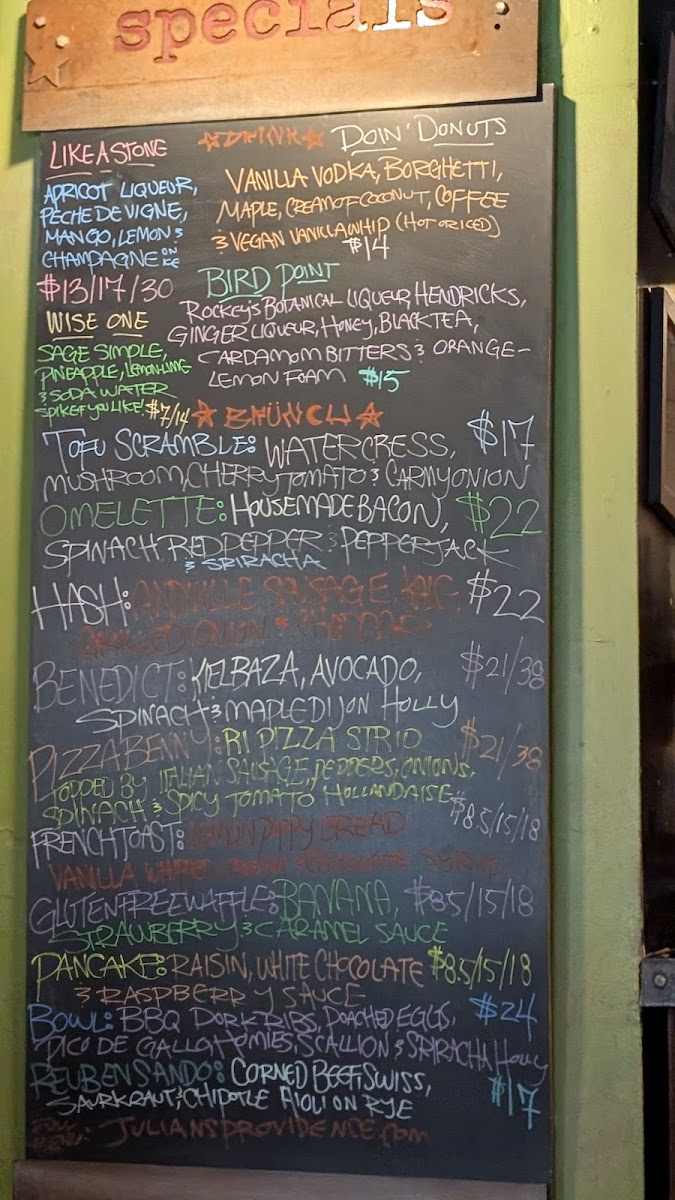 specials
★DRINK★
LIKE A STONE
APRICOT LIQUEUR,
PÊCHE DE VIGNE,
MANGO, LEMON &
CHAMPAGNE ON ICE
$13/17/30
WISE ONE
SAGE SIMPLE,
PINEAPPLE, LEMON-LIME
& SODA WATER
SPIKE IF YOU LIKE! $7/14
DOIN' DONUTS
VANILLA VODKA, BORGHETTI,
MAPLE, CREAM OF COCONUT, COFFEE
& VEGAN VANILLA WHIP (HOT OR ICED)
$14
BIRD POINT
ROCKEY'S BOTANICAL LIQUEUR, HENDRICKS,
GINGER LIQUEUR, HONEY, BLACK TEA,
CARDAMOM BITTERS & ORANGE-
LEMON FOAM $15
★BRUNCH★
TOFU SCRAMBLE: WATERCRESS, $17
MUSHROOM, CHERRY TOMATO & CARMY ONION
OMELETTE: HOUSEMADE BACON, $22
SPINACH, RED PEPPER & PEPPERJACK
& SRIRACHA
HASH: ANDOUILLE SAUSAGE, KALE, $22
GRILLED ONION & CHEDDAR
BENEDICT: KIELBAZA, AVOCADO, $21/38
SPINACH & MAPLE DIJON HOLLY
PIZZA BENNY: RI PIZZA STRIP $21/38
TOPPED BY ITALIAN SAUSAGE, PEPPERS, ONIONS,
SPINACH & SPICY TOMATO HOLLANDAISE
FRENCH TOAST: LEMON POPPY BREAD $8.5/15/18
VANILLA WHIPPED CREAM & SYRUP
GLUTEN FREE WAFFLE: BANANA, $8.5/15/18
STRAWBERRY & CARAMEL SAUCE
PANCAKE: RAISIN, WHITE CHOCOLATE $8.5/15/18
& RASPBERRY SAUCE
BOWL: BBQ PORK RIBS, POACHED EGGS, $24
PICO DE GALLO, HOMIES, SCALLION & SRIRACHA HOLLY
REUBEN SANDO: CORNED BEEF, SWISS, $17
SAURKRAUT & CHIPOTLE AIOLI ON RYE
FULL MENU: JULIANSPROVIDENCE.COM